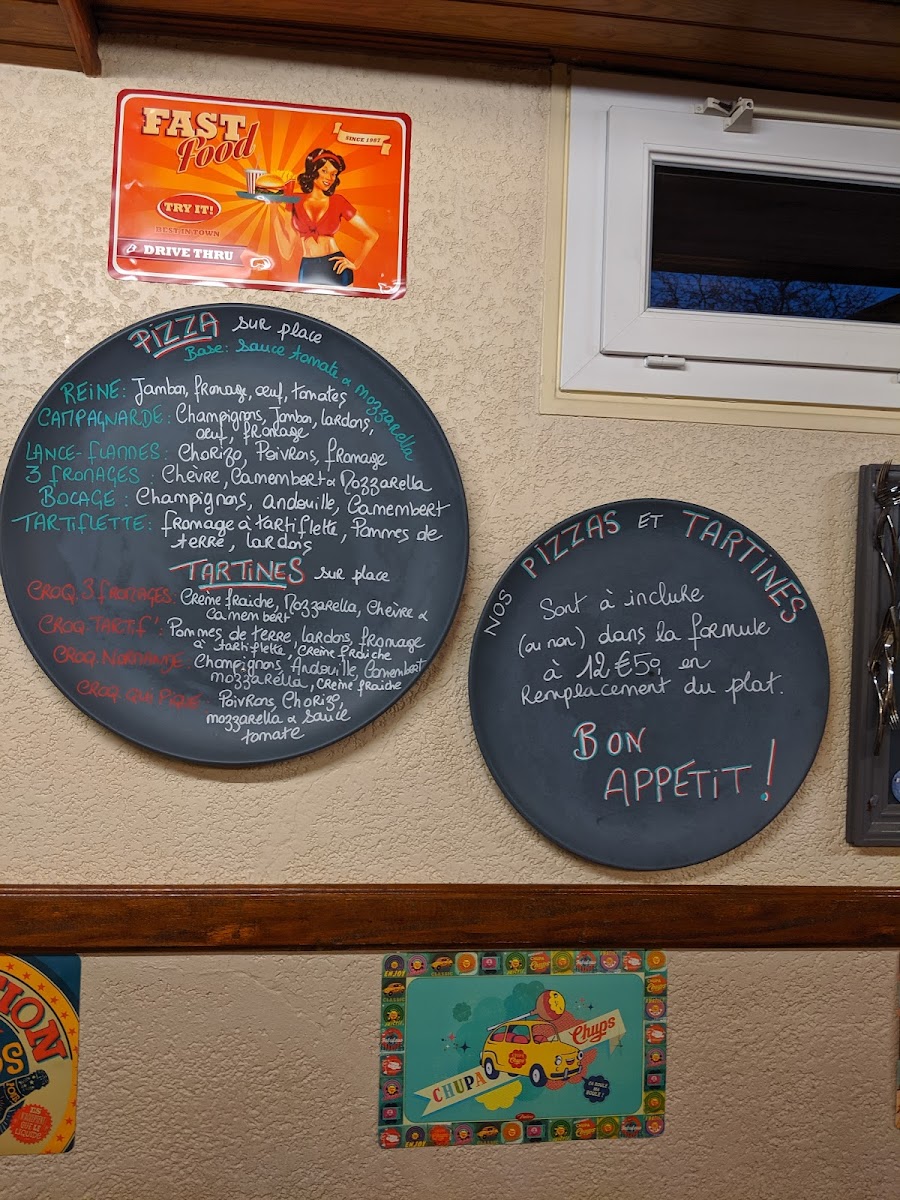 FAST
Food
SINCE 1987
TRY IT!
BEST IN TOWN
DRIVE THRU
PIZZA sur place
Base: sauce tomate & mozzarella
REINE: Jambon, fromage, œuf, tomates
CAMPAGNARDE: Champignons, Jambon, lardons,
œuf, fromage
LANCE-FLAMMES: Chorizo, Poivrons, fromage
3 FROMAGES: Chèvre, Camembert & Mozzarella
BOCAGE: Champignons, andouille, Camembert
TARTIFLETTE: fromage à tartiflette, Pommes de
terre, lardons
TARTINES sur place
CROQ. 3 FROMAGES: Crème fraiche, Mozzarella, Chèvre &
Camembert
CROQ-TARTIF': Pommes de terre, lardons, fromage
à tartiflette, crème fraiche
CROQ NORMANDE: Champignons, Andouille, Camembert
mozzarella, crème fraiche
CROQ QUI PIQUE: Poivrons, Chorizo,
mozzarella & sauce
tomate
NOS PIZZAS ET TARTINES
Sont à inclure
(ou non) dans la formule
à 12€50 en
Remplacement du plat.
BON
APPETIT!
CHUPA
Chups
ENJOY
CLASSIC